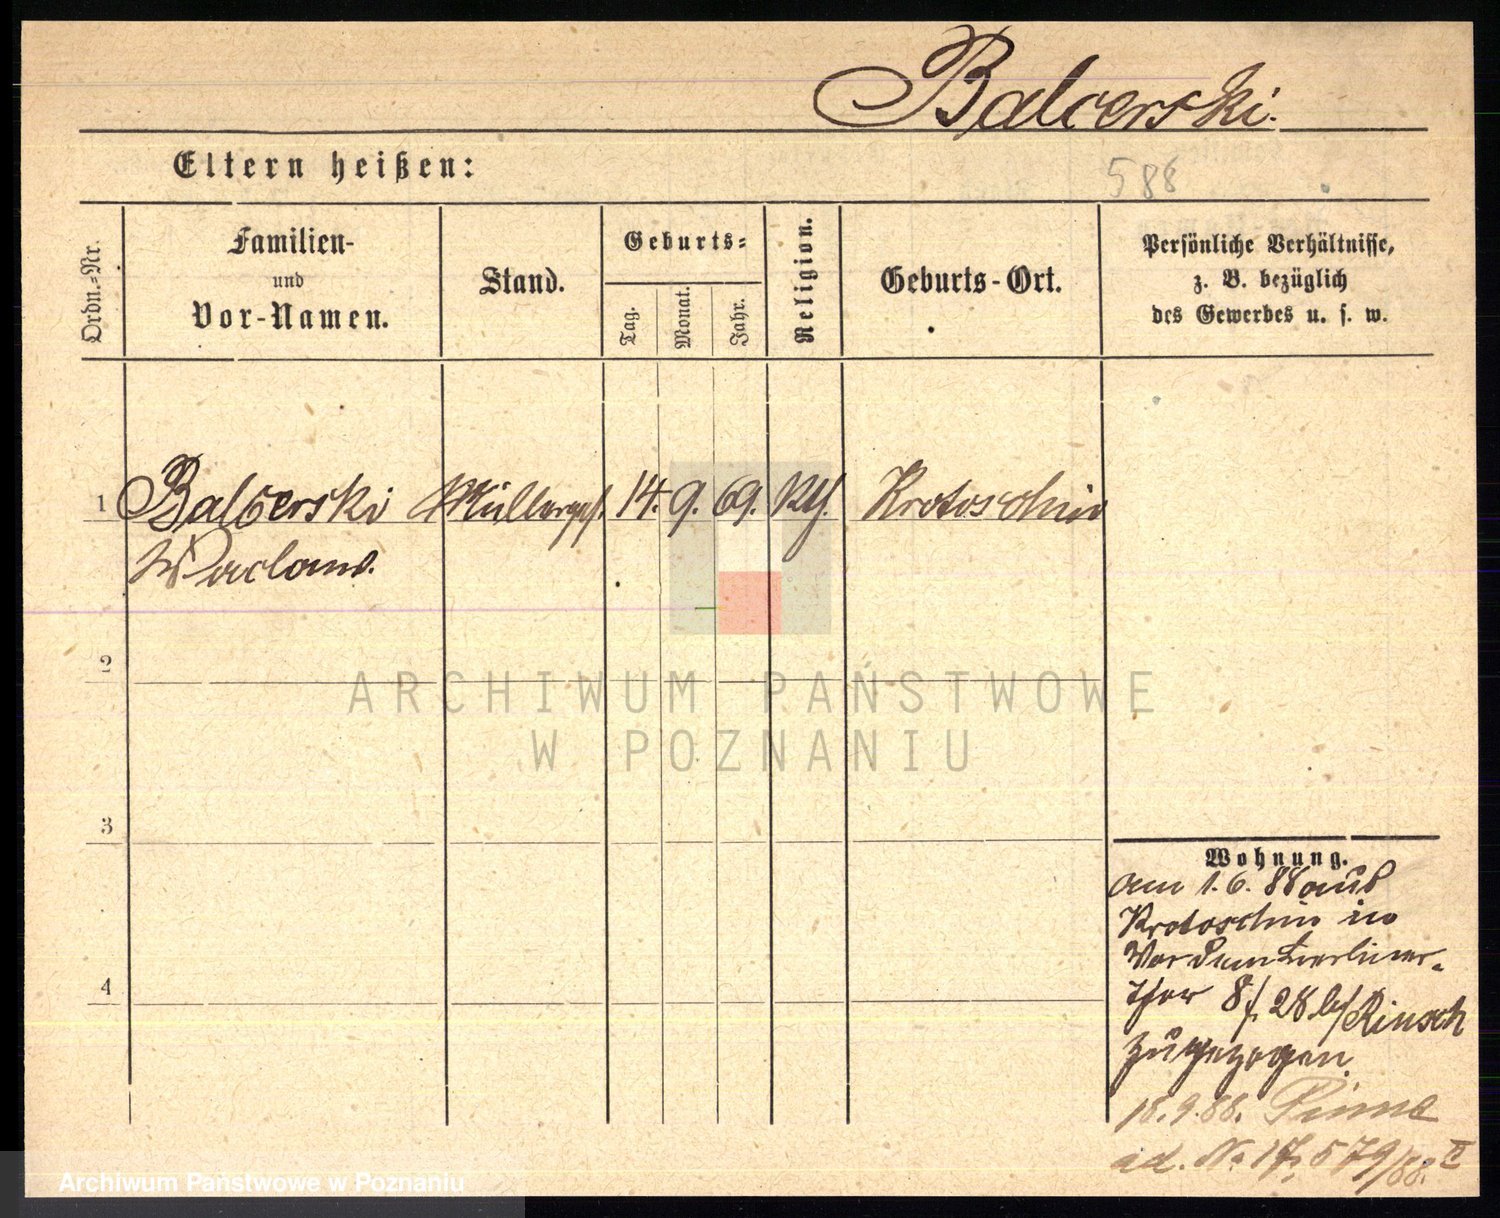 Balcerski.
Eltern heißen:
588
Ordn.-Nr.
Familien-
und
Vor-Namen.
Stand.
Geburts-
Tag.
Monat.
Jahr.
Religion.
Geburts-Ort.
Persönliche Verhältnisse,
z. B. bezüglich
des Gewerbes u. s. w.
1 Balcerski Müllerges. 14. 9. 69. Kth. Krotoschin
Waclaw.
2
ARCHIWUM PAŃSTWOWE
W POZNANIU
3
4
Wohnung.
am 1. 6. 88 aus
Krotoschin in
Vor dem Berliner-
thor 8/ 28. b/ Rinsch
zugezogen.
18. 9. 88. Pinne
ad. No 17,579/88. II
Archiwum Państwowe w Poznaniu